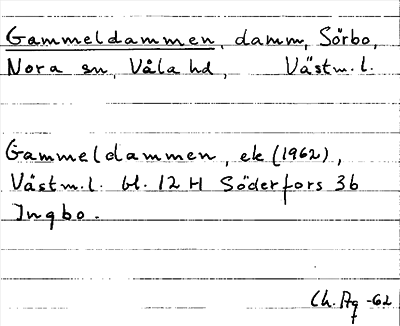 Gammeldammen, damm, Sörbo,
Nora sn, Våla hd, Västm.l.
Gammeldammen, ek (1962),
Västm.l. bl. 12 H Söderfors 3b
Ingbo.
Ch. Ag -62